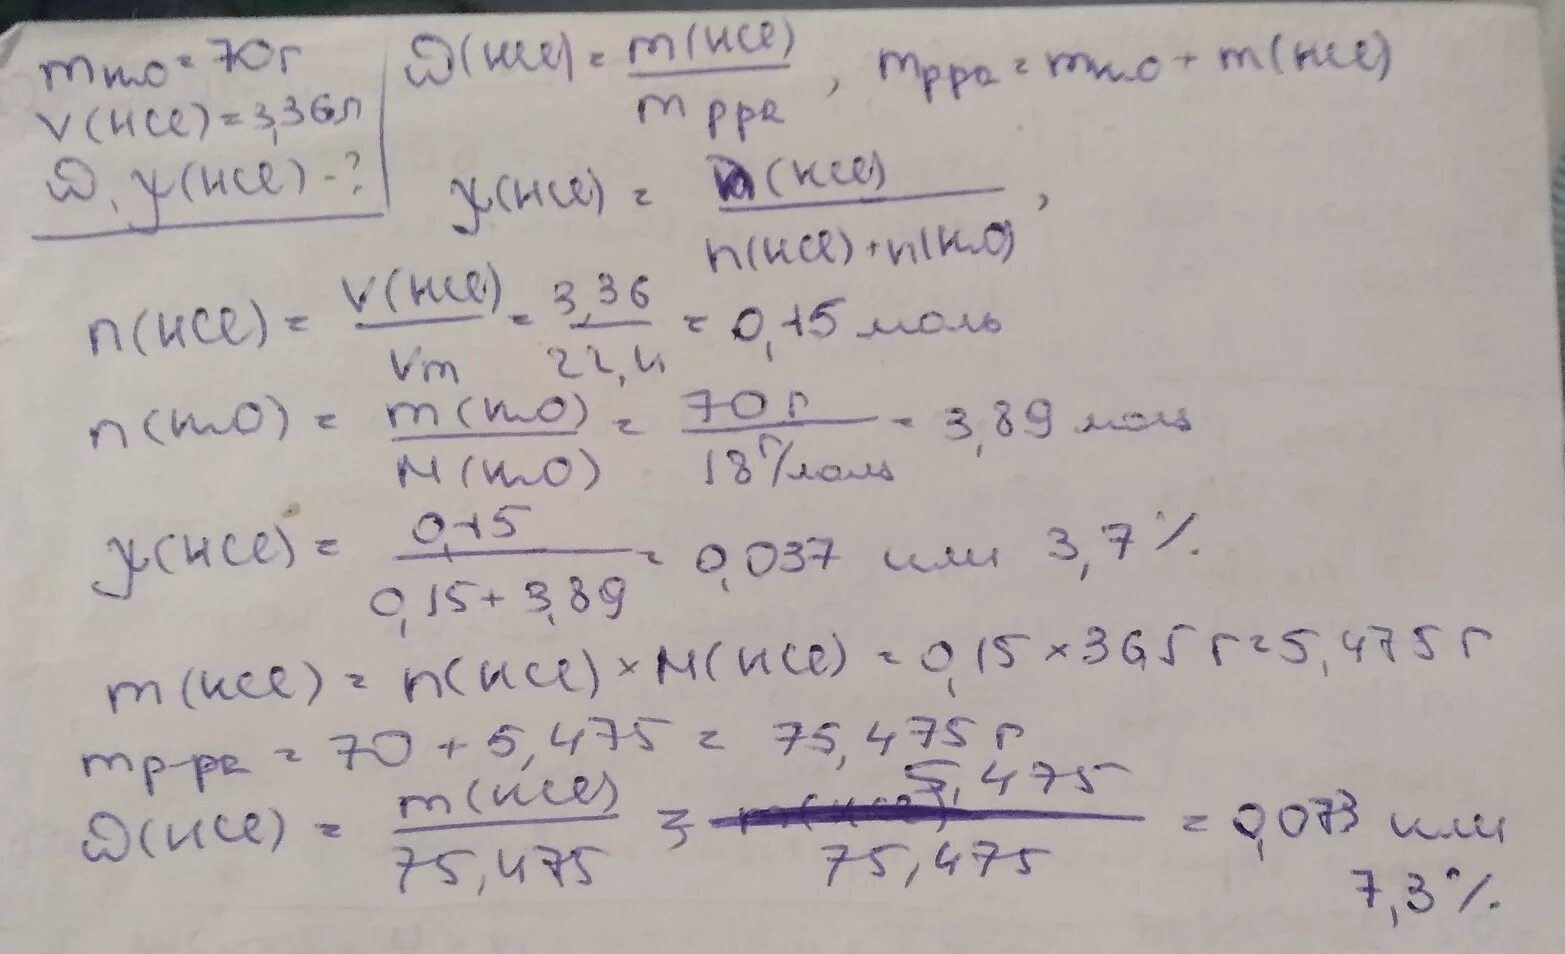 m H₂O = 70 г
V(HCl) = 3,36 л
ω, χ(HCl) - ?
ω(HCl) = m(HCl) / m р-ра , m р-ра = m H₂O + m(HCl)
χ(HCl) = n(HCl) / n(HCl) + n(H₂O) ,
n(HCl) = V(HCl) / Vm = 3,36 / 22,4 = 0,15 моль
n(H₂O) = m(H₂O) / M(H₂O) = 70 г / 18 г/моль = 3,89 моль
χ(HCl) = 0,15 / 0,15 + 3,89 = 0,037 или 3,7%
m(HCl) = n(HCl) × M(HCl) = 0,15 × 36,5 г = 5,475 г
m р-ра = 70 + 5,475 = 75,475 г
ω(HCl) = m(HCl) / 75,475 = 5,475 / 75,475 = 0,073 или
7,3%